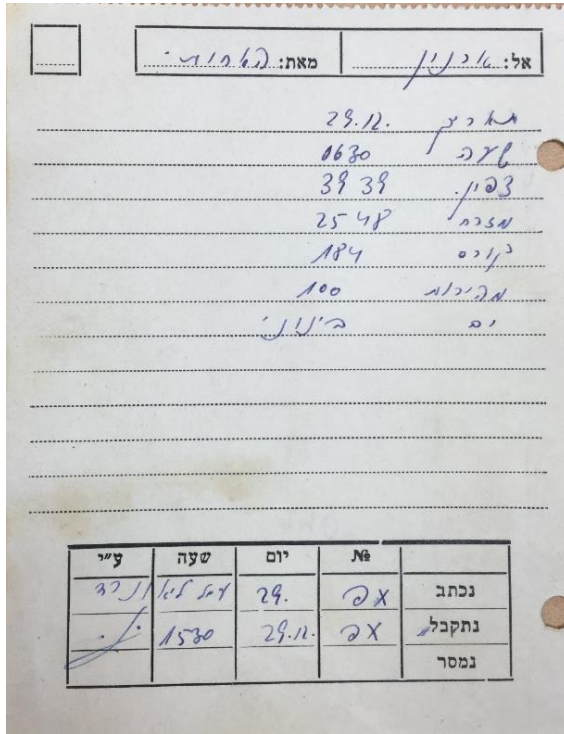 אל: ארנון מאת: האחות
תאריך 29.12.
שעה 0630
צפון 39 39
מזרח 25 48
קורס 184
מהירות 100
ים בינוני
№ יום שעה ע״י
נכתב 29.
נתקבל 29.12. 1530
נמסר